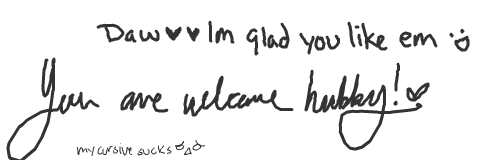 Daw♥♥ Im glad you like em :3
You are welcome hubby! ♥
my cursive sucks